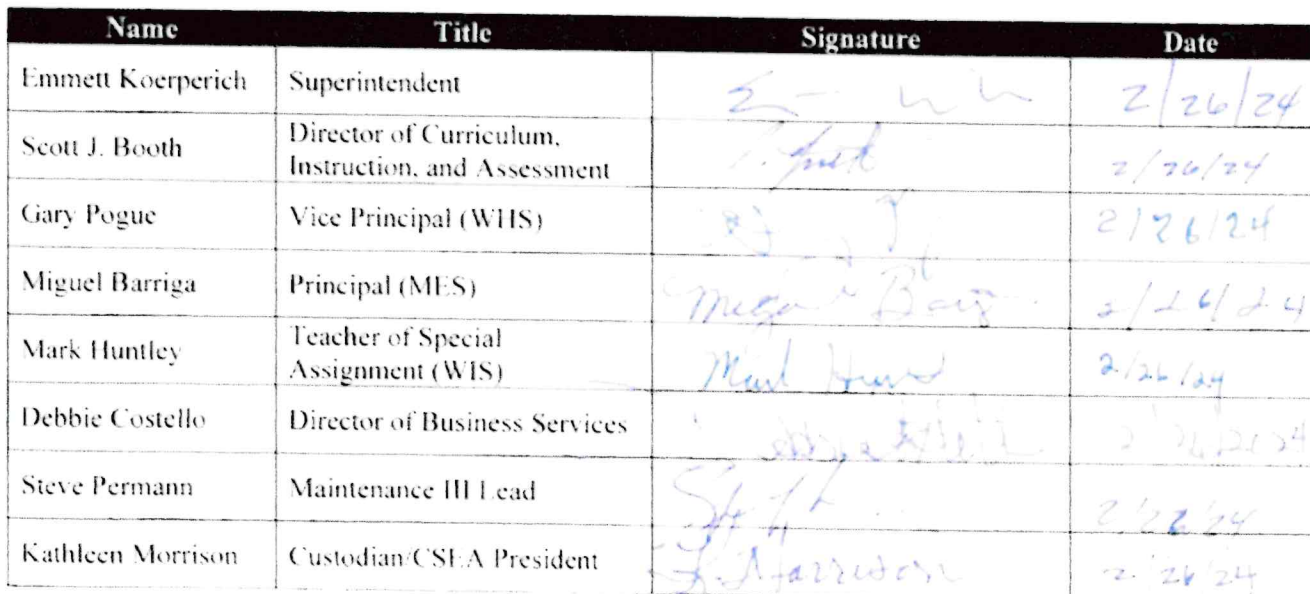 Name Title Signature Date
Emmett Koerperich Superintendent 2/26/24
Scott J. Booth Director of Curriculum,
Instruction, and Assessment 2/26/24
Gary Pogue Vice Principal (WHS) 2/26/24
Miguel Barriga Principal (MES) 2/26/24
Mark Huntley Teacher of Special
Assignment (WIS) Mark 2/26/24
Debbie Costello Director of Business Services
Steve Permann Maintenance III Lead 2/26/24
Kathleen Morrison Custodian/CSEA President K Morrison 2/26/24